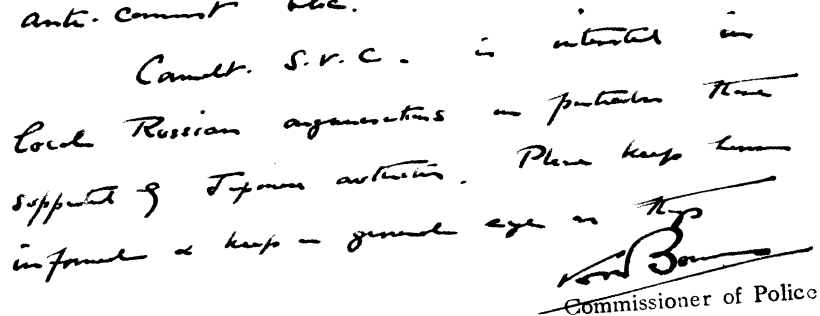 anti-
Comdt. S.V.C. is interested in
local Russian organisations in particular those
supported by Japanese authorities. Please keep him
informed & keep a general eye on
Commissioner of Police